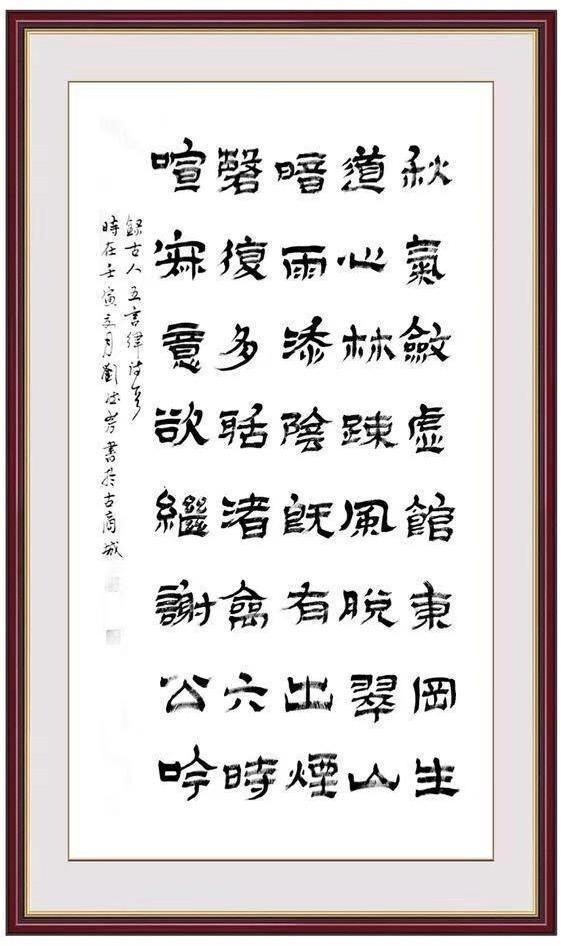 秋氣斂虛館東岡生
道心林踈風脫翠山
暗雨添陰既有出煙
磬復多聒渚禽六時
喧寂意欲繼謝公吟
錄古人五言律詩
時在壬寅五月劉書於古商城